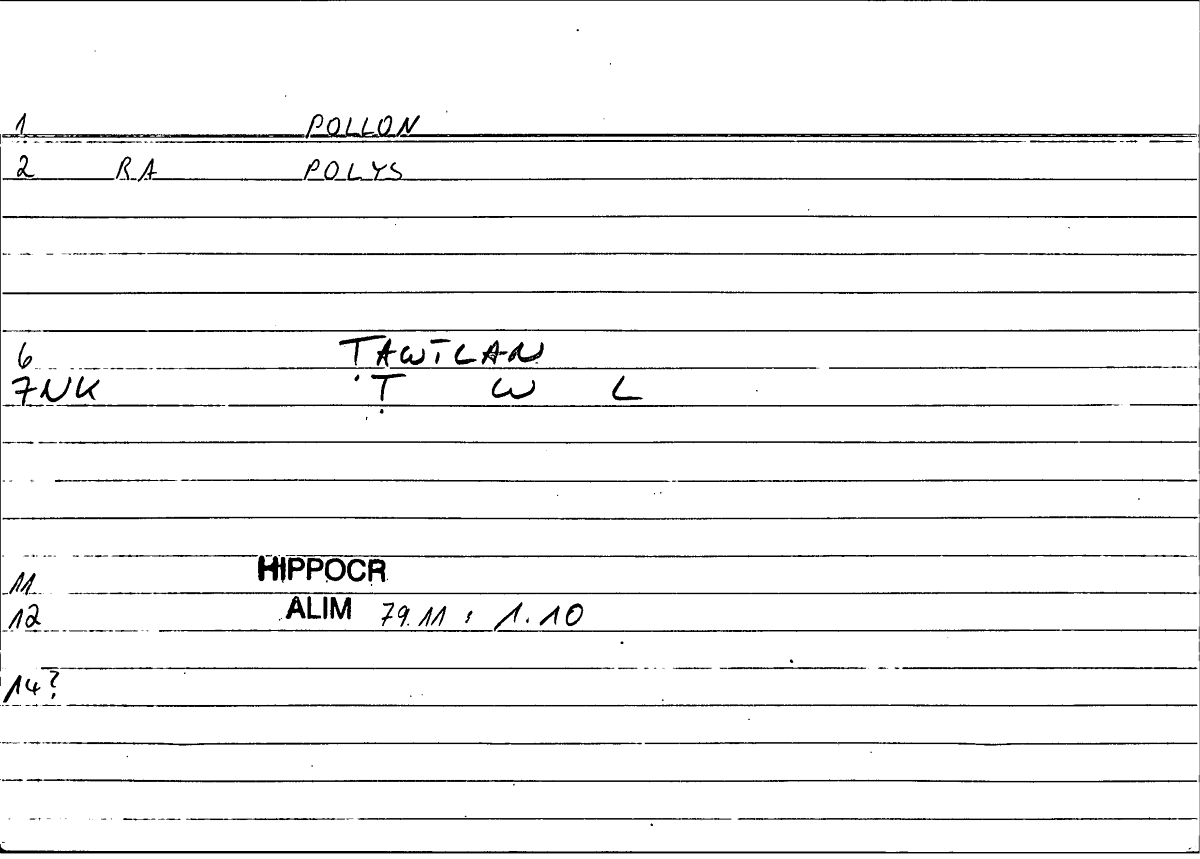 1 POLLON
2 RA POLYS
6 TAWTLAN
7NK Ṭ W L
11 HIPPOCR
12 ALIM 79.11 : 1.10
14?